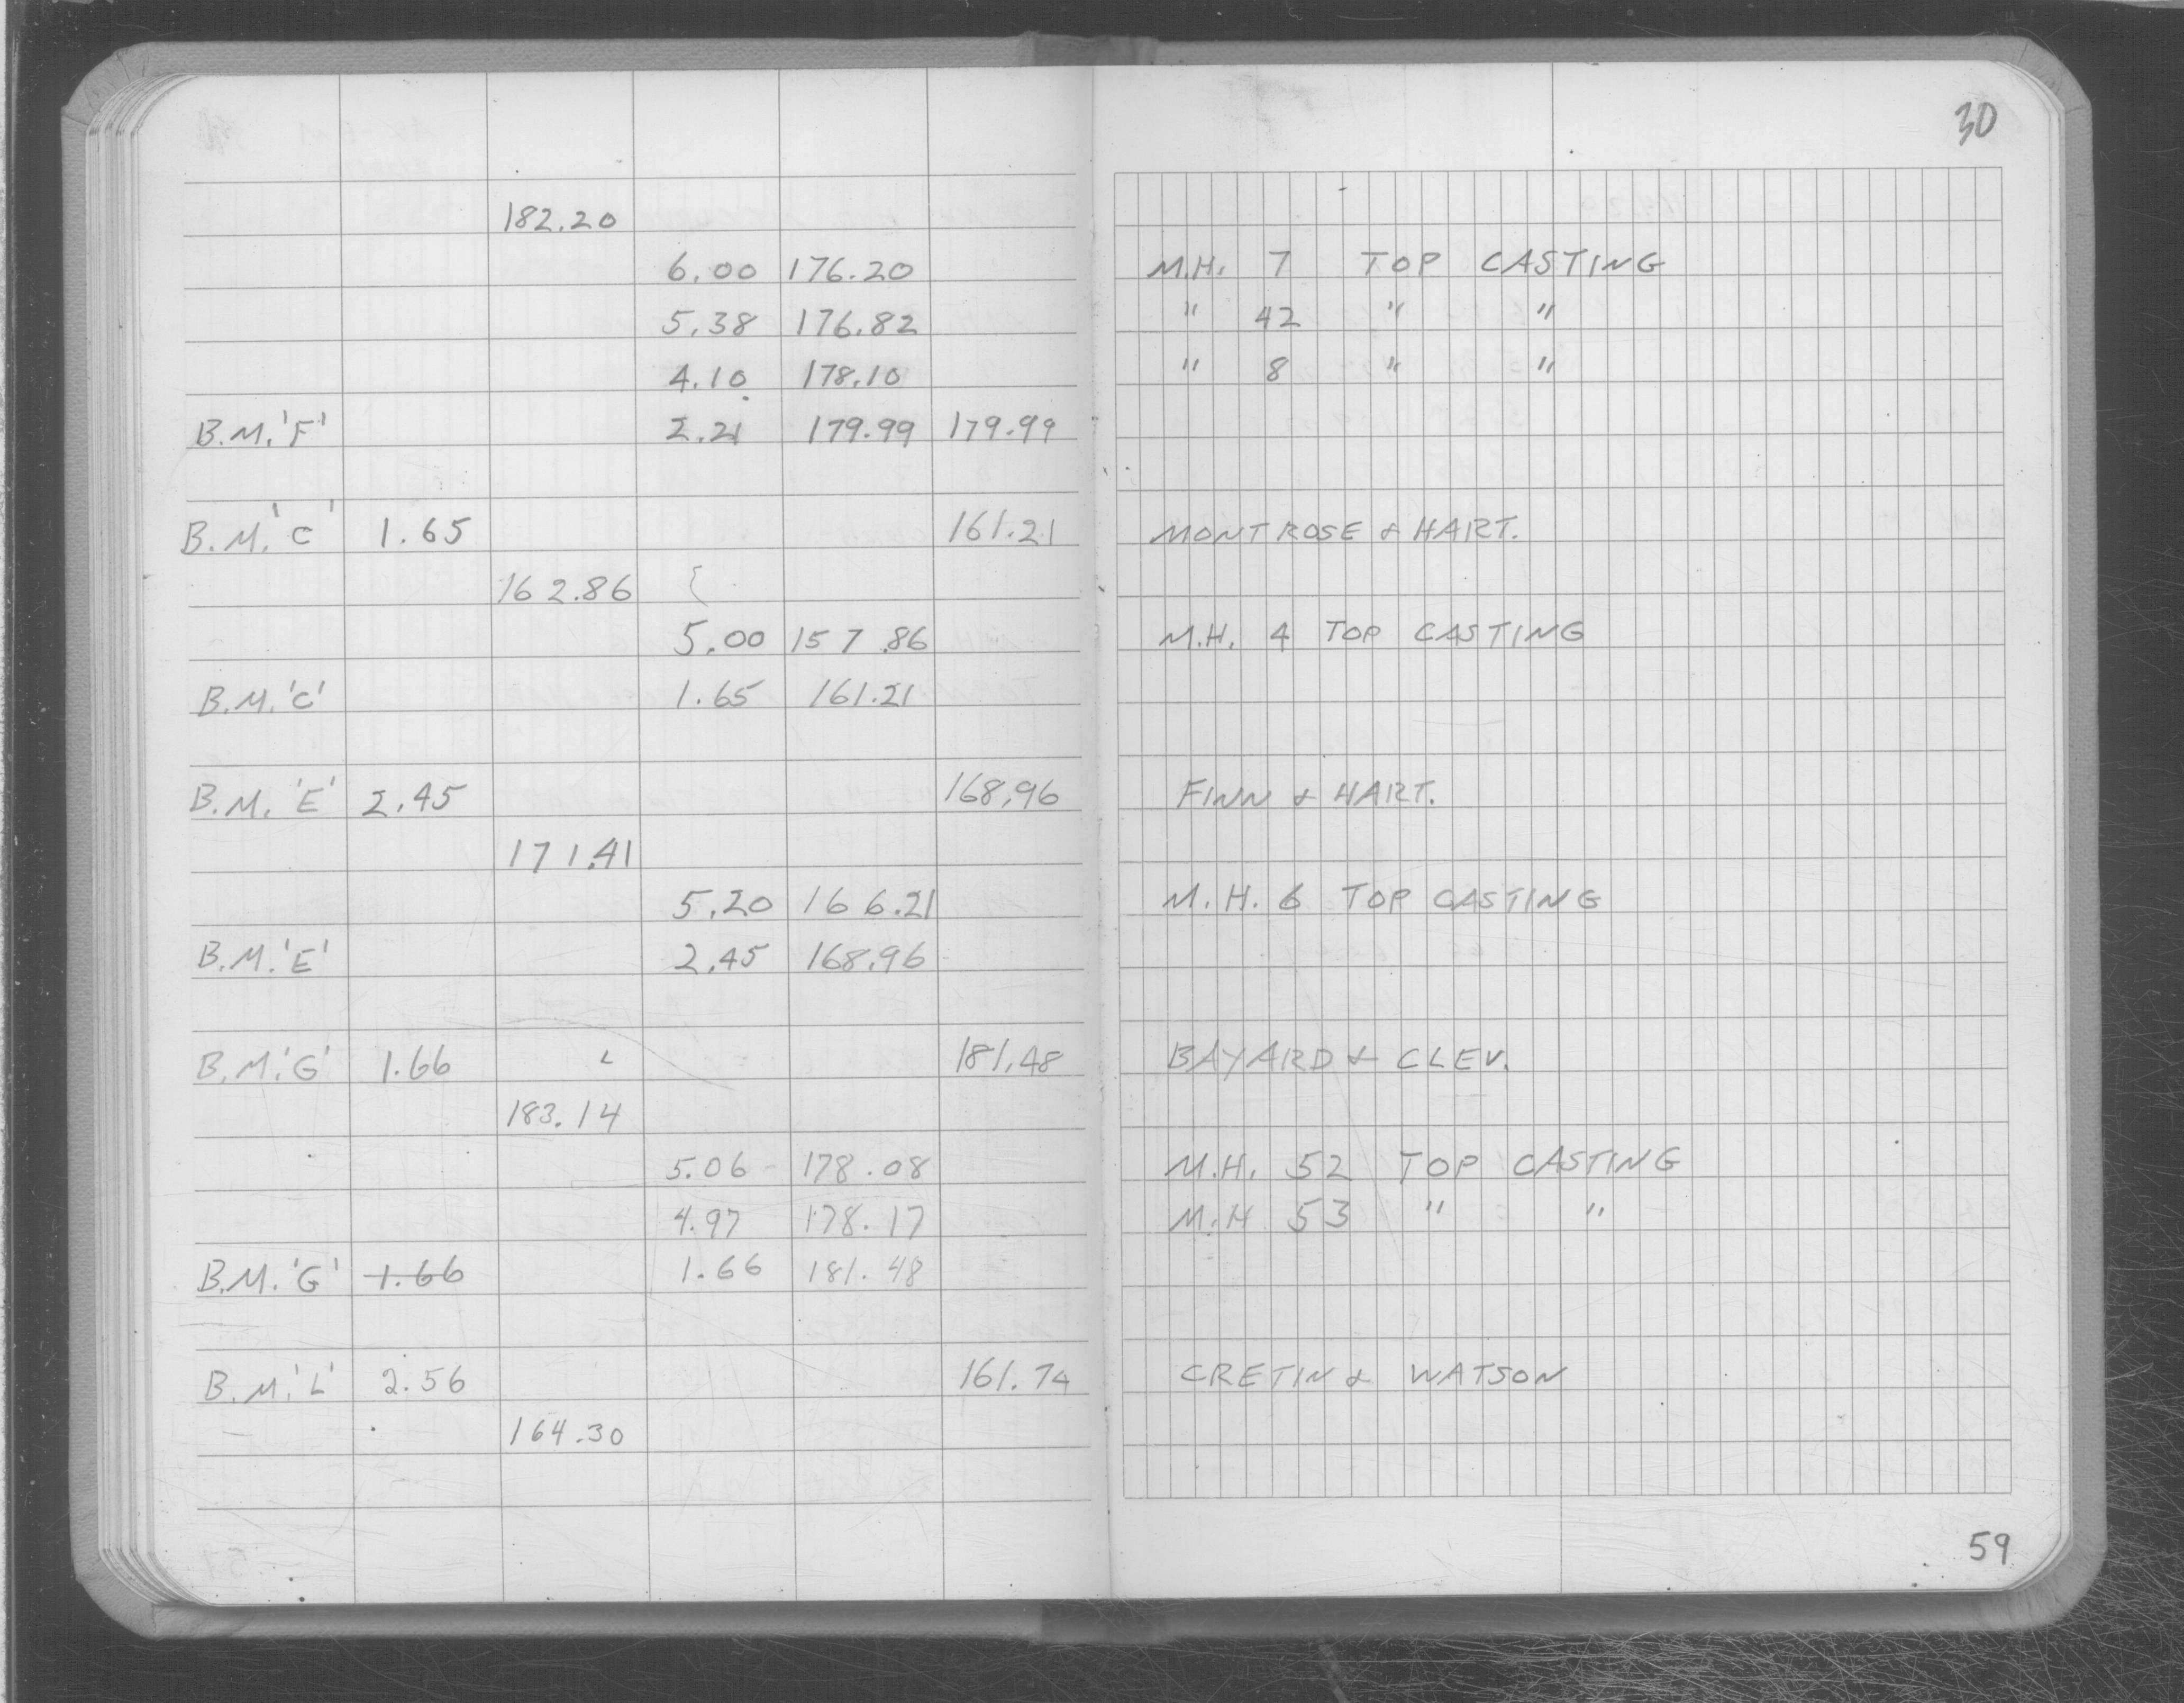 30
182.20
6.00 176.20 M.H. 7 TOP CASTING
5.38 176.82 " 42 " "
4.10 178.10 " 8 " "
B.M.'F' 2.21 179.99 179.99
B.M.'C' 1.65 161.21 MONTROSE & HART.
162.86
5.00 157.86 M.H. 4 TOP CASTING
B.M.'C' 1.65 161.21
B.M.'E' 2.45 168.96 FINN & HART.
171.41
5.20 166.21 M.H. 6 TOP CASTING
B.M.'E' 2.45 168.96
B.M.'G' 1.66 181.48 BAYARD & CLEV.
183.14
5.06 178.08 M.H. 52 TOP CASTING
4.97 178.17 M.H 53 " "
B.M.'G' 1.66 1.66 181.48
B.M.'L' 2.56 161.74 CRETIN & WATSON
164.30
59